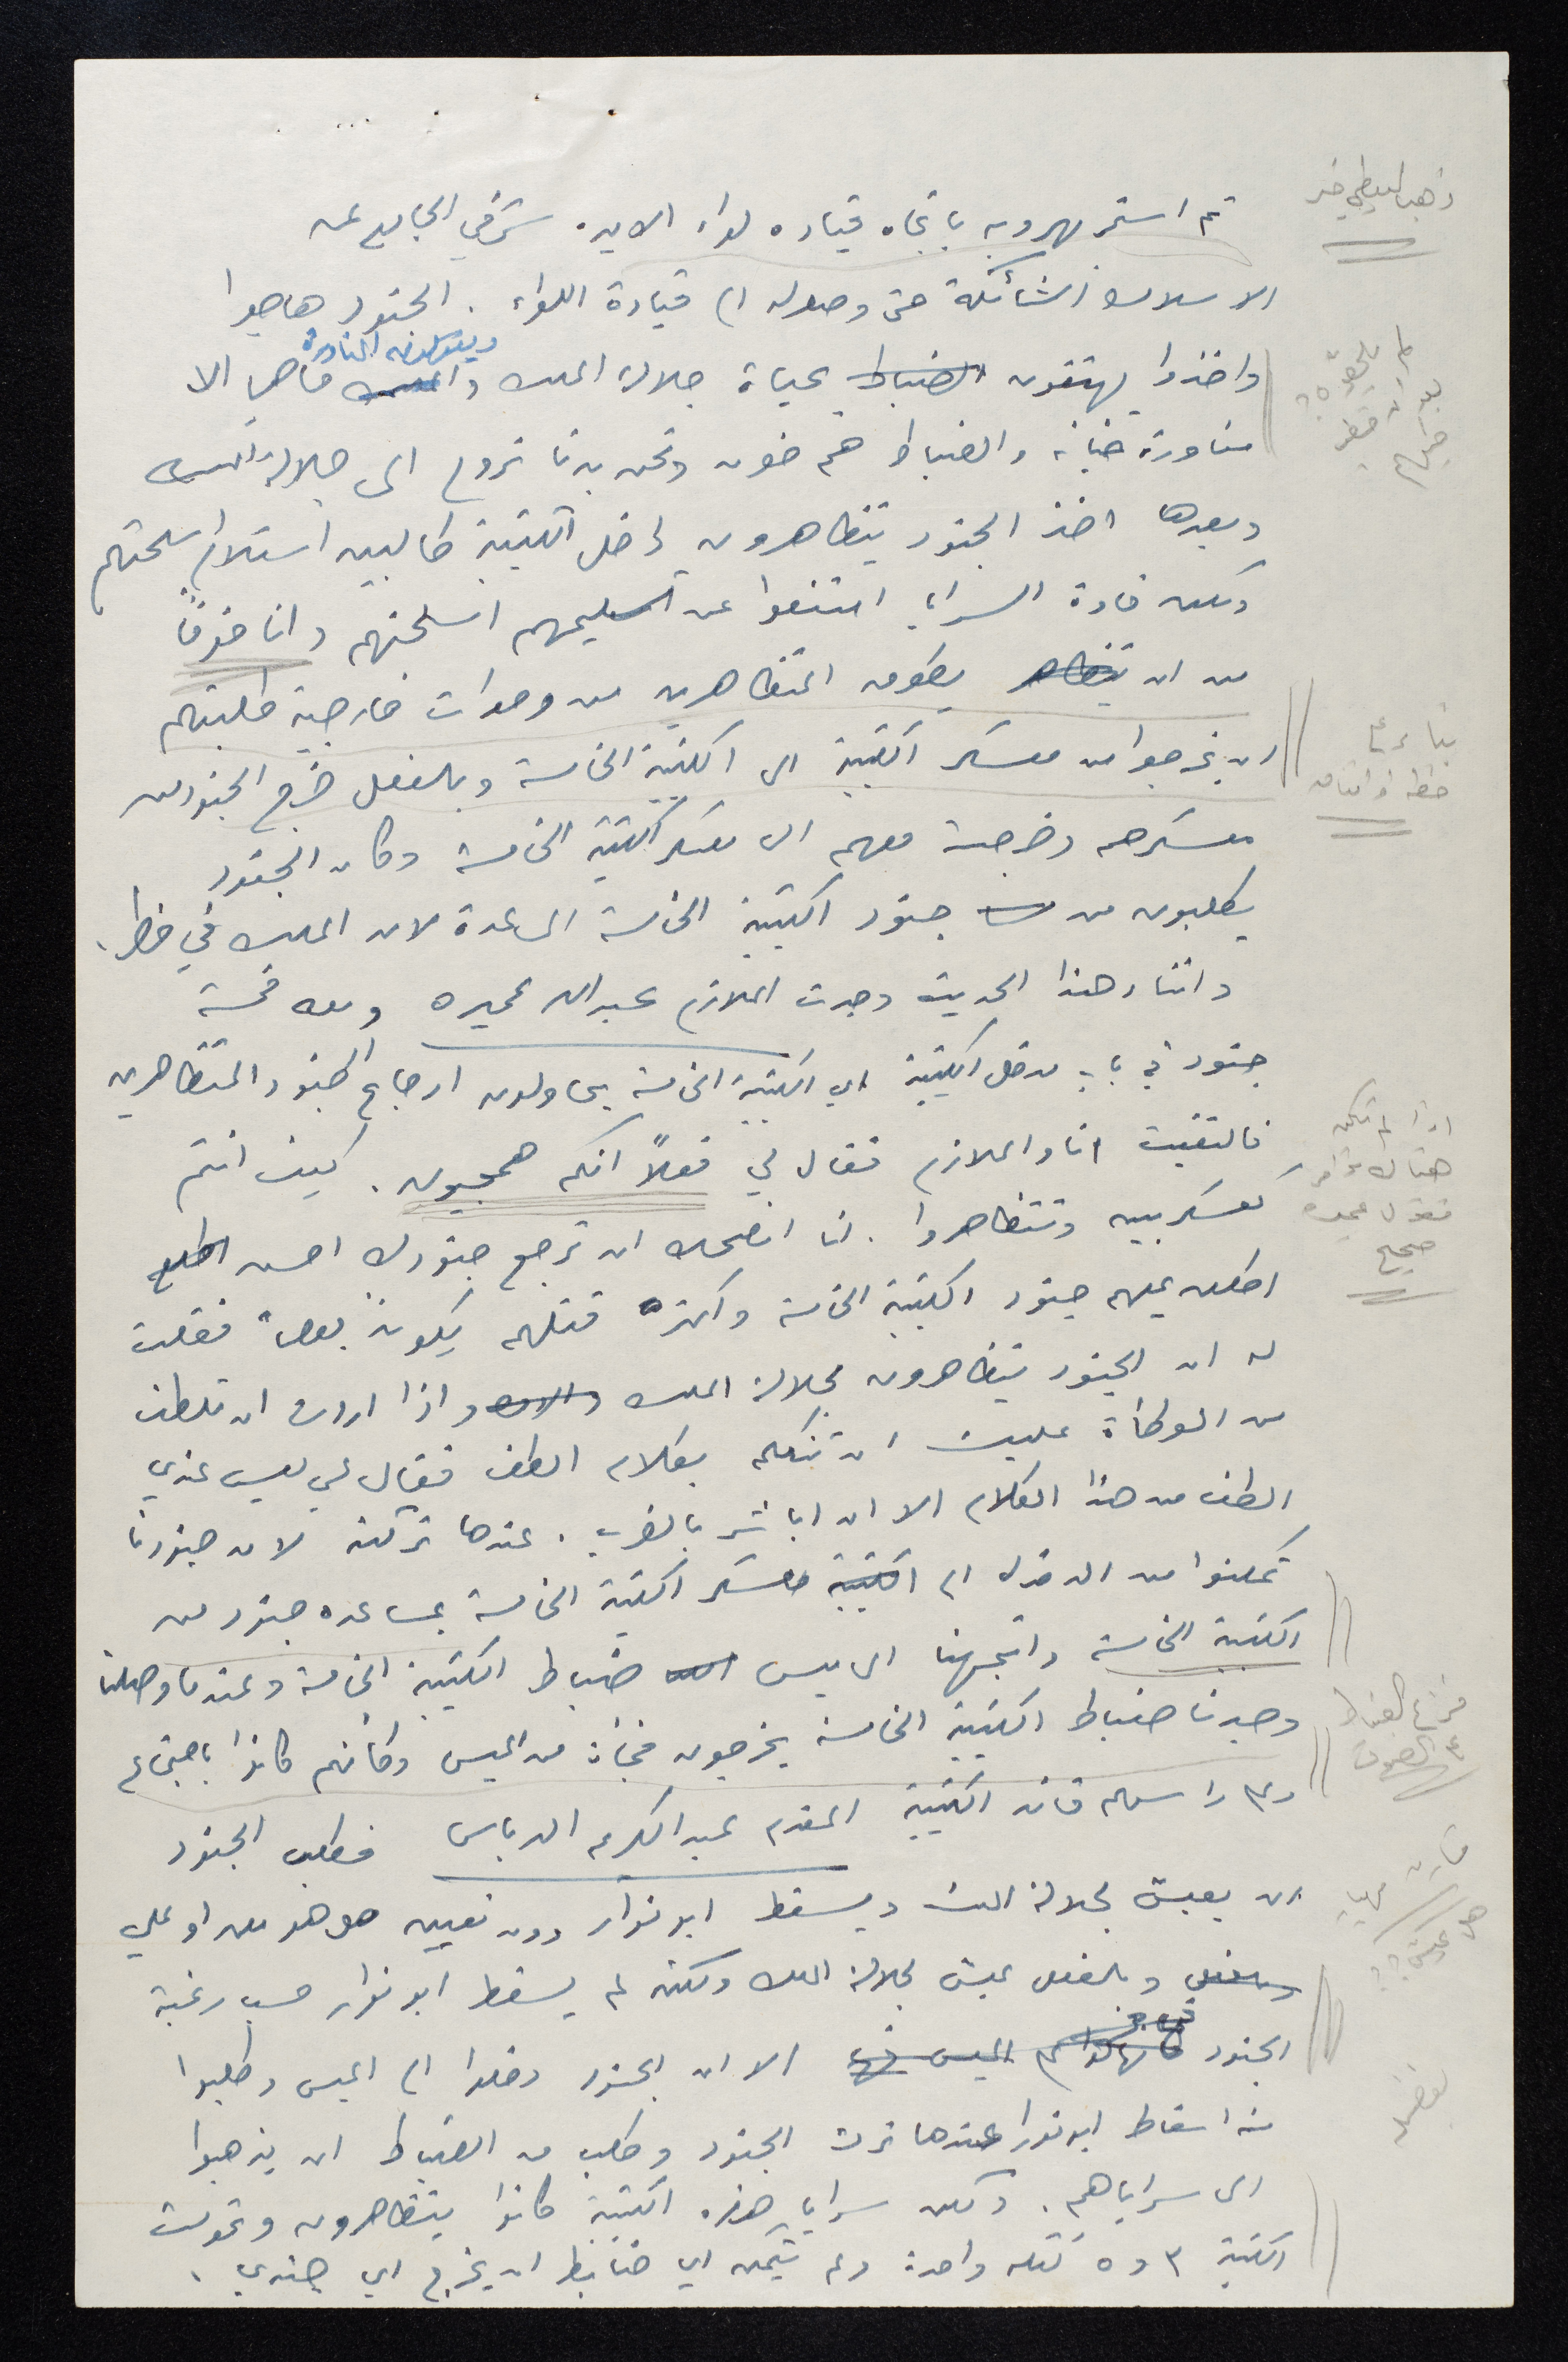 ثم استمر بهروبه باتجاه قياده لواء الاميره شرقي الجامع عن
الاسلاك الشائكة حتى وصوله الى قيادة اللواء. الجنود هاجوا
واخذوا يهتفون الضباط بحياة جلالة الملك ويقولون المناورة ماهي الا
مناورة خيانه والضباط هم خون ونحن بدنا نروح الى جلالة الملك
وبعدها اخذ الجنود يتظاهرون داخل الكتيبة طالبين استلام اسلحتهم
ولكن قادة السرايا امتنعوا عن تسليمهم اسلحتهم وانا خوفاً
من ان يتظاهر يطوق المتظاهرين من وحدات خارجية طلبتهم
ان يخرجوا من معسكر الكتيبة الى الكتيبة الخامسة وبالفعل خرج الجنود من
معسكرهم وخرجت معهم الى معسكر الكتيبة الخامسة وكان الجنود
يطلبون من جنود الكتيبة الخامسة المساعدة لان الملك في خطر.
واثناء هذا الحديث وجدت الملازم عبدالله عميره ومعه خمسة
جنود في باب مدخل الكتيبة اي الكتيبة الخامسة يحاولون ارجاع الجنود المتظاهرين
فالتقيت انا والملازم فقال لي فعلاً انكم همجيون. كيف انتم
كعسكريين وتتظاهروا. انا انصحك ان ترجع جنودك احسن اطلع
اطلق عليهم جنود الكتيبة الخامسة واكثر قتلهم يكون فقلت
له ان الجنود يتظاهرون لجلالة الملك واذا اردت ان تلطف
من الوطأة عليك ان تتكلم بكلام الطف فقال لي ليس عندي
الطف من هذا الكلام الا ان اباشر بالضرب. عندها تركته لان جنودنا
تمكنوا من الدخول الى الكتيبة معسكر الكتيبة الخامسة بمساعده جنود من
الكتيبة الخامسة واتجهنا الى ميس ضباط الكتيبة الخامسة وعندما وصلنا
وجدنا ضباط الكتيبة الخامسة يخرجون فجأة من الميس وكأنهم كانوا باجتماع
وعلى راسهم قائد الكتيبة المقدم عبدالكريم الدباس فطلب الجنود
ان يعيش لجلالة الملك ويسقط ابو نوار دون تعيين هل هو معن او علي
وبالفعل وبالفعل عيش لجلالة الملك ولكنه لم يسقط ابو نوار حسب رغبة
الجنود الميس الا ان الجنود دخلوا الى الميس وطلبوا
منه اسقاط ابو نوار عندها ترك الجنود وطلب من الضباط ان يذهبوا
الى سراياهم. ولكن سرايا هذه الكتيبة كانوا يتظاهرون وتحولت
الكتيبة ٣ و ٥ كتله واحدة ولم يتمكن اي ضابط ان يخرج اي جندي.
بناء على
خطة واتفاق
اذا لم تكن
هناك مؤامره
فقول عميره
صحيح